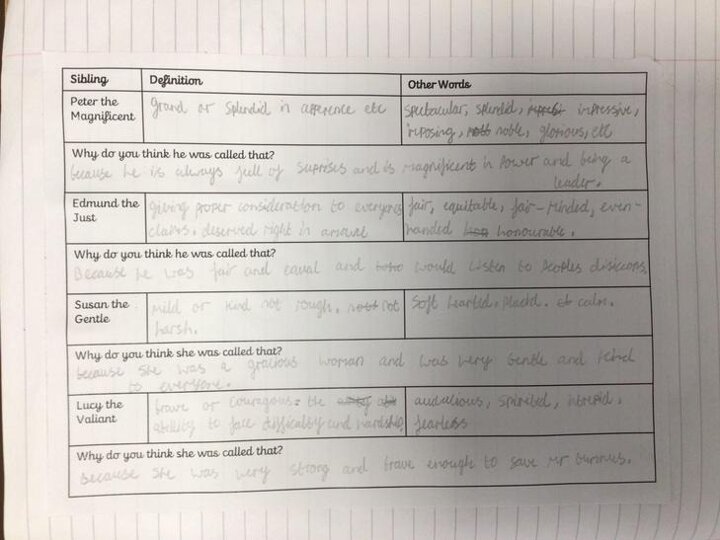 Sibling Definition Other Words
Peter the grand or splendid in apperence etc spectacular, splendid, impressive,
Magnificent imposing, noble, glorious, etc
Why do you think he was called that?
because he is always full of suprises and is magnificent in power and being a
leader.
Edmund the giving proper consideration to everyones fair, equitable, fair-minded, even-
Just claims. deserved right in amount handed honourable.
Why do you think he was called that?
Because he was fair and equal and would listen to peoples
Susan the mild or kind not rough. not Soft hearted. Placid. calm.
Gentle harsh.
Why do you think she was called that?
because she was a gracious woman and was very gentle and kind
to everyone.
Lucy the brave or courageous. the audacious, spirited, intrepid,
Valiant ability to face difficalty and hardship fearless
Why do you think she was called that?
because she was very strong and brave enough to save mr